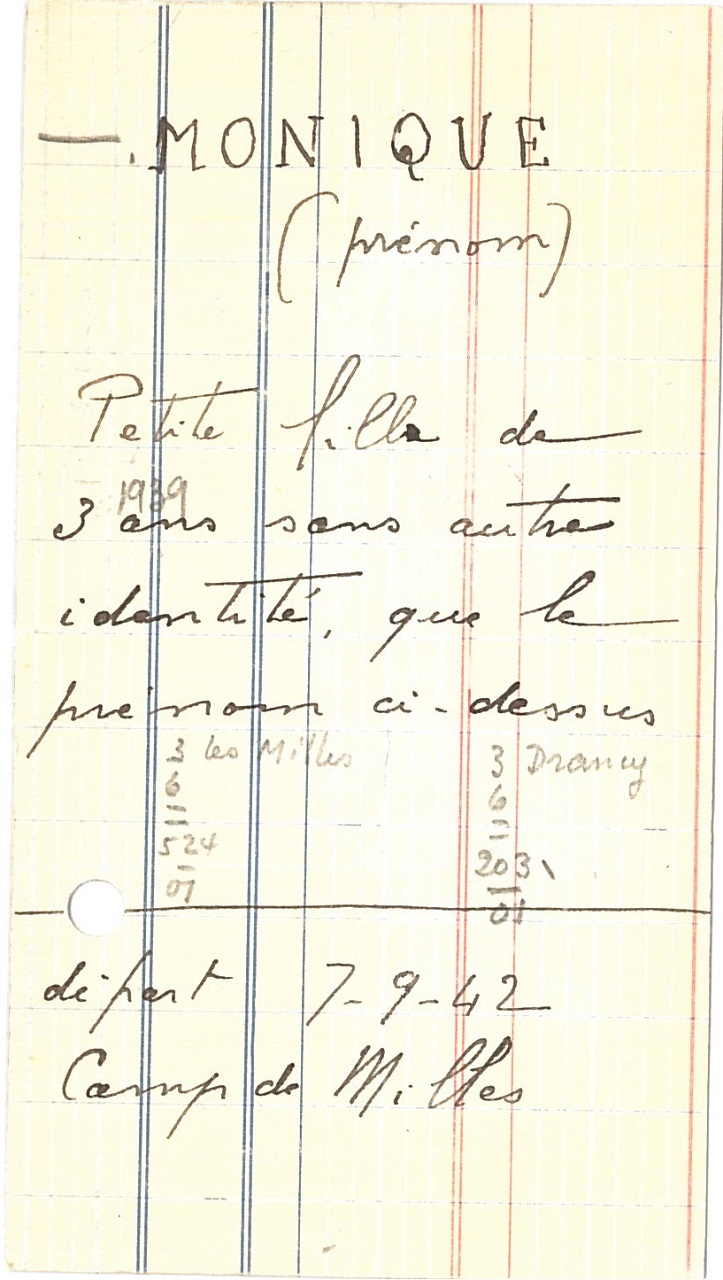 — . MONIQUE
(prénom)
Petite fille de
1939
3 ans sans autre
identité, que le
prénom ci-dessus
3 les Milles
6
524
01
3 Drancy
6
203
01
départ 7-9-42
Camp de Milles